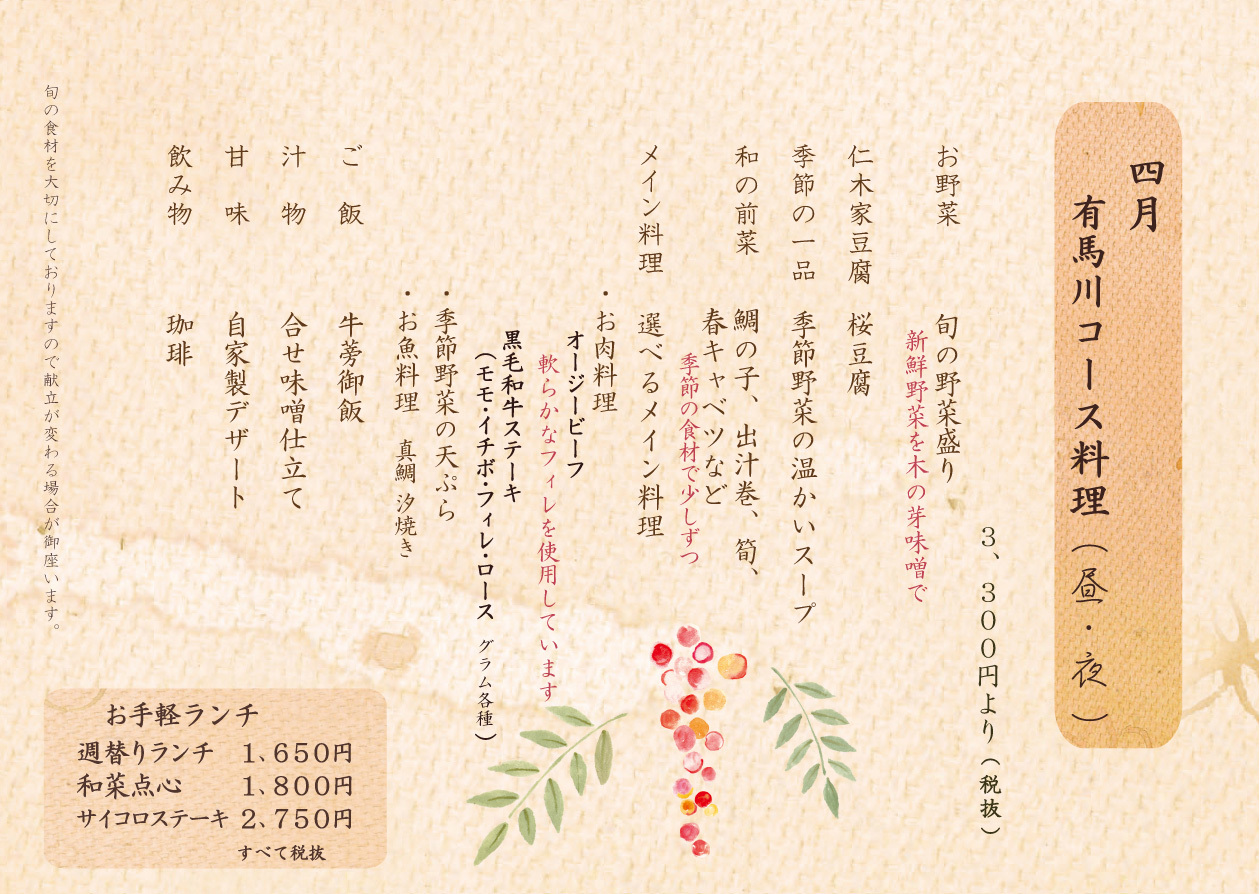 四月
有馬川コース料理（昼・夜）
３、３００円より（税抜）
お野菜　旬の野菜盛り
新鮮野菜を木の芽味噌で
仁木家豆腐　桜豆腐
季節の一品　季節野菜の温かいスープ
和の前菜　鯛の子、出汁巻、筍、
春キャベツなど
季節の食材で少しずつ
メイン料理　選べるメイン料理
・お肉料理
オージービーフ
軟らかなフィレを使用しています
黒毛和牛ステーキ
（モモ・イチボ・フィレ・ロース　グラム各種）
・季節野菜の天ぷら
・お魚料理　真鯛　汐焼き
ご飯　牛蒡御飯
汁物　合せ味噌仕立て
甘味　自家製デザート
飲み物　珈琲
旬の食材を大切にしておりますので献立が変わる場合が御座います。
お手軽ランチ
週替りランチ　1、650円
和菜点心　1、800円
サイコロステーキ　2、750円
すべて税抜